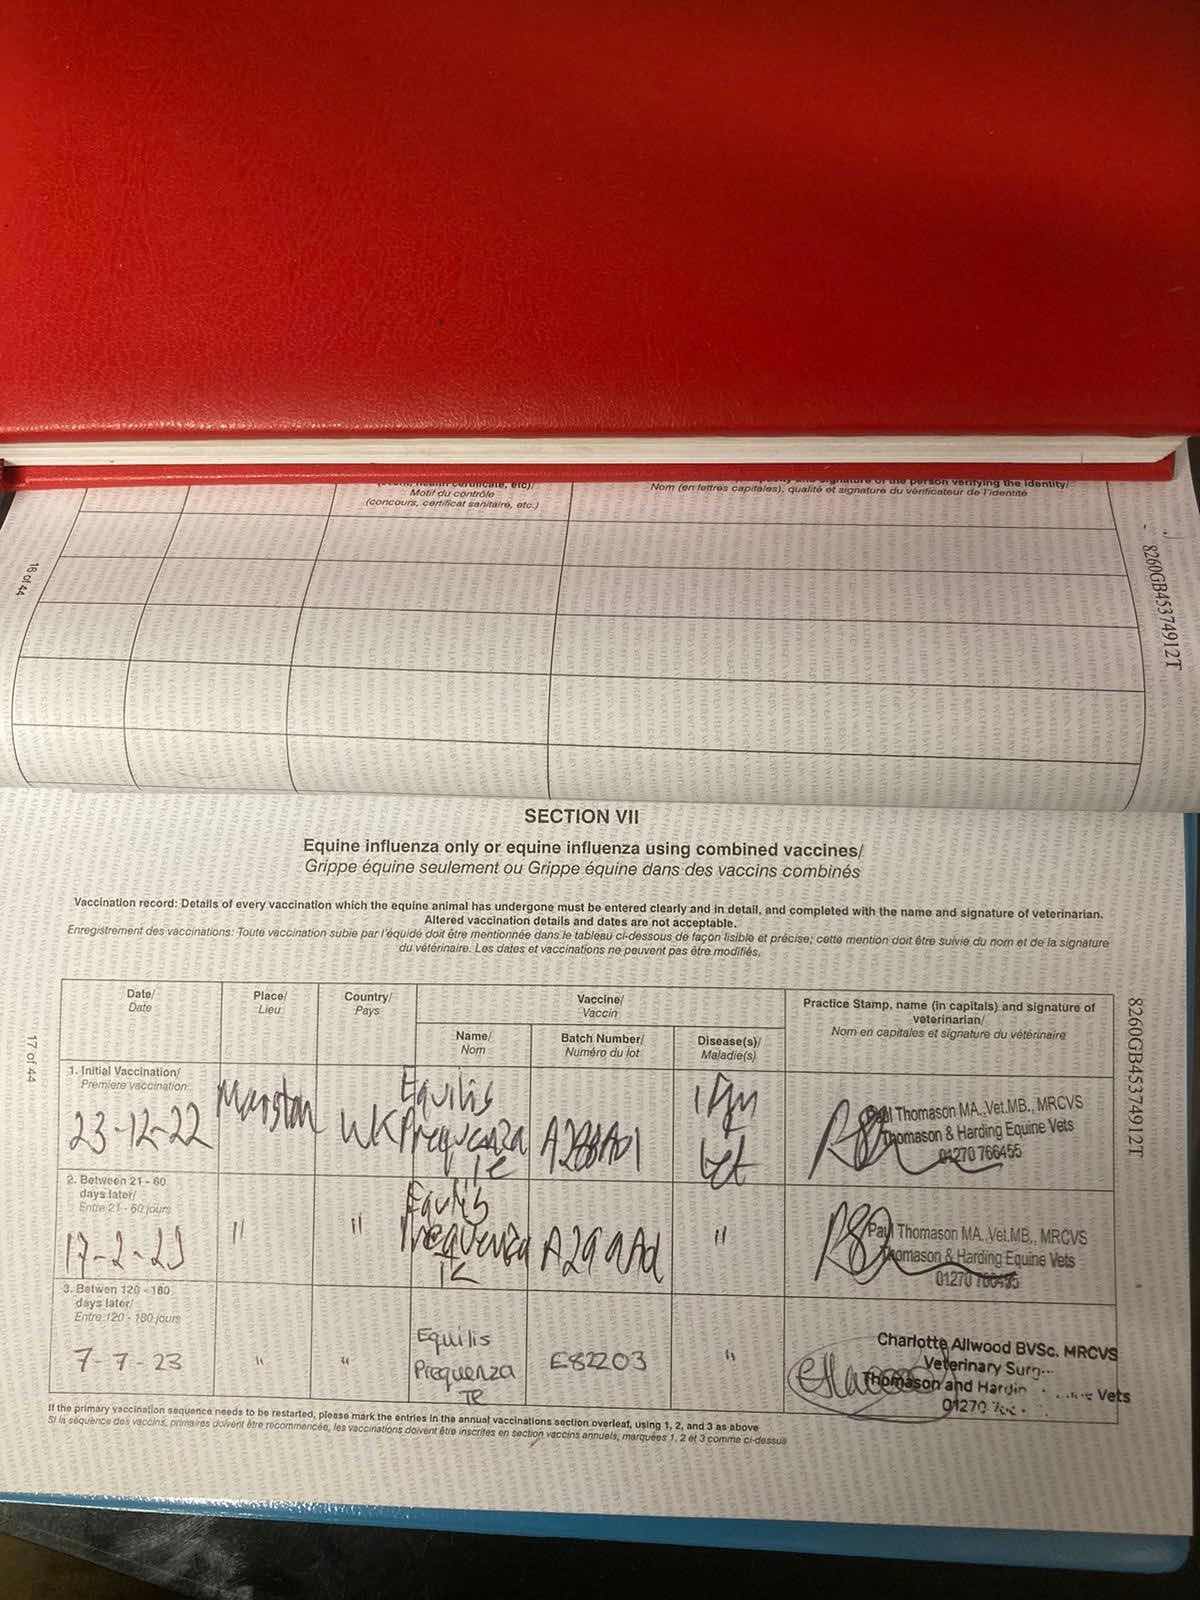 Motif du contrôle
(concours, certificat sanitaire, etc.)
signature of the person verifying the identity/
Nom (en lettres capitales), qualité et signature du vérificateur de l'identité
16 of 44
8260GB45374912T
SECTION VII
Equine influenza only or equine influenza using combined vaccines/
Grippe équine seulement ou Grippe équine dans des vaccins combinés
Vaccination record: Details of every vaccination which the equine animal has undergone must be entered clearly and in detail, and completed with the name and signature of veterinarian.
Altered vaccination details and dates are not acceptable.
Enregistrement des vaccinations: Toute vaccination subie par l'équidé doit être mentionnée dans le tableau ci-dessous de façon lisible et précise; cette mention doit être suivie du nom et de la signature
du vétérinaire. Les dates et vaccinations ne peuvent pas être modifiés.
Date/
Date
Place/
Lieu
Country/
Pays
Vaccine/
Vaccin
Name/
Nom
Batch Number/
Numéro du lot
Disease(s)/
Maladie(s)
Practice Stamp, name (in capitals) and signature of
veterinarian/
Nom en capitales et signature du vétérinaire
17 of 44
8260GB45374912T
1. Initial Vaccination/
Première vaccination
23-12-22
UK
Equilis
Prequenza
Te
Paul Thomason MA.,Vet.MB., MRCVS
Thomason & Harding Equine Vets
01270 766455
2. Between 21 - 60
days later/
Entre 21 - 60 jours
17-2-23
"
"
Equilis
Prequenza
Te
"
Paul Thomason MA.,Vet.MB., MRCVS
Thomason & Harding Equine Vets
01270 766455
3. Betwen 120 - 180
days later/
Entre 120 - 180 jours
7-7-23
"
"
Equilis
Prequenza
Te
E82203
"
Charlotte Allwood BVSc. MRCVS
Veterinary
Thomason and Vets
01270
If the primary vaccination sequence needs to be restarted, please mark the entries in the annual vaccinations section overleaf, using 1, 2, and 3 as above
Si la séquence des vaccins, primaires doivent être recommencée, les vaccinations doivent être inscrites en section vaccins annuels, marquées 1, 2 et 3 comme ci-dessus